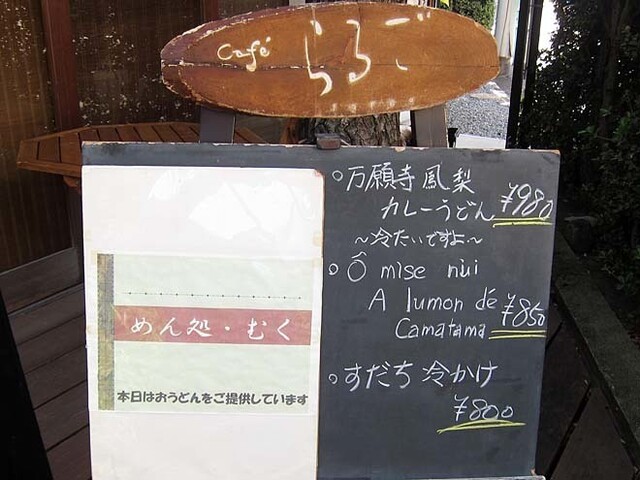 Café らるご
めん処・むく
本日はおうどんをご提供しています
○万願寺鳳梨
カレーうどん ¥980
〜冷たいですよ〜
○Ô mise nùi
A lumon dé ¥850
Camatama
○すだち冷かけ
¥800